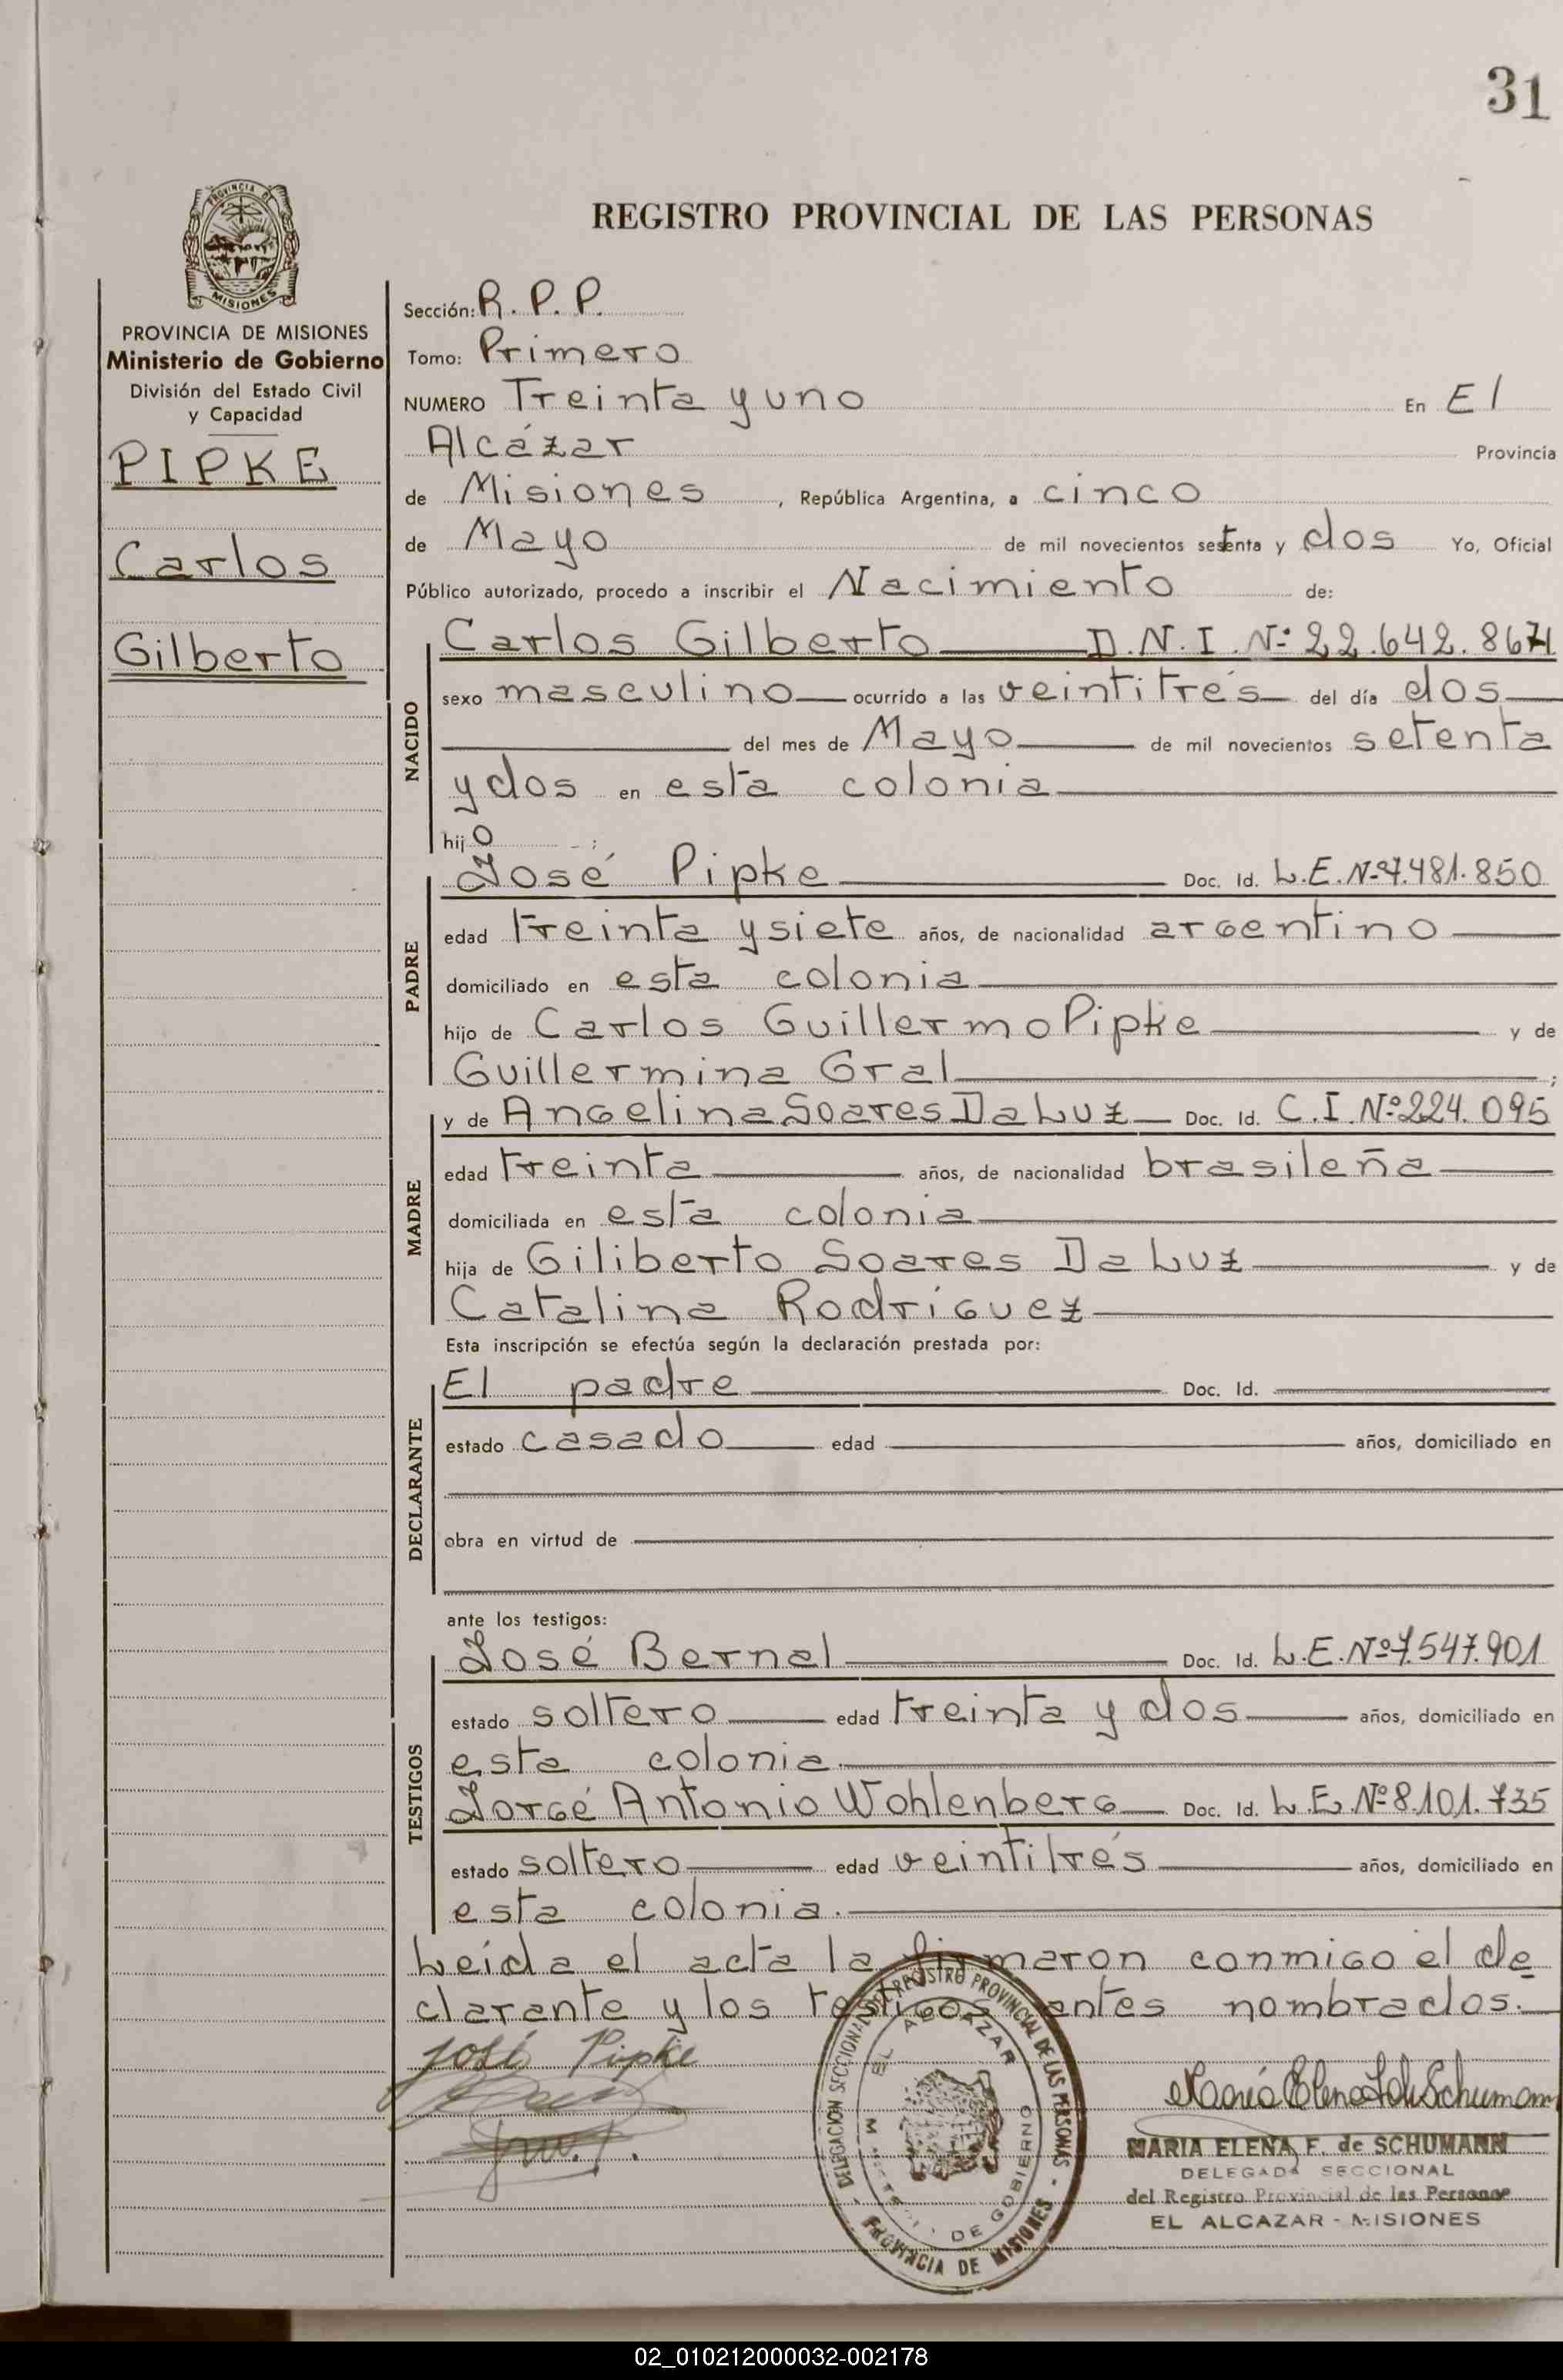 31
PROVINCIA DE
MISIONES
REGISTRO PROVINCIAL DE LAS PERSONAS
PROVINCIA DE MISIONES
Ministerio de Gobierno
División del Estado Civil
y Capacidad
PIPKE
Carlos
Gilberto
Sección: R.P.P.
Tomo: Primero
NUMERO Treinta y uno En El
Alcázar Provincia
de Misiones, República Argentina, a cinco
de Mayo de mil novecientos setenta y dos Yo, Oficial
Público autorizado, procedo a inscribir el Nacimiento de:
NACIDO
Carlos Gilberto D.N.I. Nº 22.642.867
sexo masculino ocurrido a las veintitrés del día dos
del mes de Mayo de mil novecientos setenta
y dos en esta colonia
hijo ;
PADRE
José Pipke Doc. Id. L.E. Nº 7.481.850
edad treinta y siete años, de nacionalidad argentino
domiciliado en esta colonia
hijo de Carlos Guillermo Pipke y de
Guillermina Gral ;
MADRE
y de Angelina Soares Da Luz Doc. Id. C.I. Nº 224.095
edad treinta años, de nacionalidad brasileña
domiciliada en esta colonia
hija de Giliberto Soares Da Luz y de
Catalina Rodríguez
Esta inscripción se efectúa según la declaración prestada por:
DECLARANTE
El padre Doc. Id.
estado casado edad años, domiciliado en
obra en virtud de
ante los testigos:
TESTIGOS
José Bernal Doc. Id. L.E. Nº 7.547.901
estado soltero edad treinta y dos años, domiciliado en
esta colonia.
Jorgé Antonio Wohlenberg Doc. Id. L.E. Nº 8.101.735
estado soltero edad veintitrés años, domiciliado en
esta colonia.
Leída el acta la firmaron conmigo el de
clarante y los testigos antes nombrados.
José Pipke
DELEGACION SECCIONAL DEL REGISTRO PROVINCIAL DE LAS PERSONAS - PROVINCIA DE MISIONES -
EL ALCAZAR
MINISTERIO DE GOBIERNO
María Elena F. de Schumann
MARIA ELENA F. de SCHUMANN
DELEGADA SECCIONAL
del Registro Provincial de las Personas
EL ALCAZAR - MISIONES
02_010212000032-002178